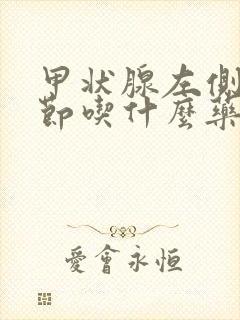 甲状腺左側
節喫什麼藥
愛會永恒